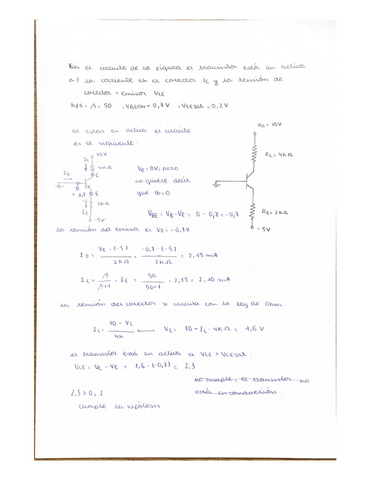 En el circuito de la figura el transistor está en activa
a) la corriente en el colector Ic y la tensión de
colector-emisor VCE
hFE = β = 50, VBEON = 0,7 V, VCEsat = 0,2V
al estar en activa el circuito
es el siguiente:
VCC = 10V
RC = 4KΩ
RE = 2KΩ
-5V
10V
4KΩ
IC
C
IB
B
+ 0,7
E
IE
2KΩ
-5V
VB = 0V, pero
no quiere decir
que IB = 0
VBE = VB - VE = 0 - 0,7 = -0,7
la tensión del emisor es VE = -0,7V
IE = VE - (-5) / 2KΩ = -0,7 - (-5) / 2KΩ = 2,15 mA
IC = β / β+1 · IE = 50 / 50+1 · 2,15 = 2,10 mA
la tensión del colector se calcula con la ley de Ohm.
IC = 10 - VC / 4K → VC = 10 - IC · 4KΩ = 1,6 V
el transistor está en activa si VCE > VCEsat.
VCE = VC - VE = 1,6 - (-0,7) = 2,3
no cumple, el transistor no
está en conducción.
2,3 > 0,2
cumple la hipótesis